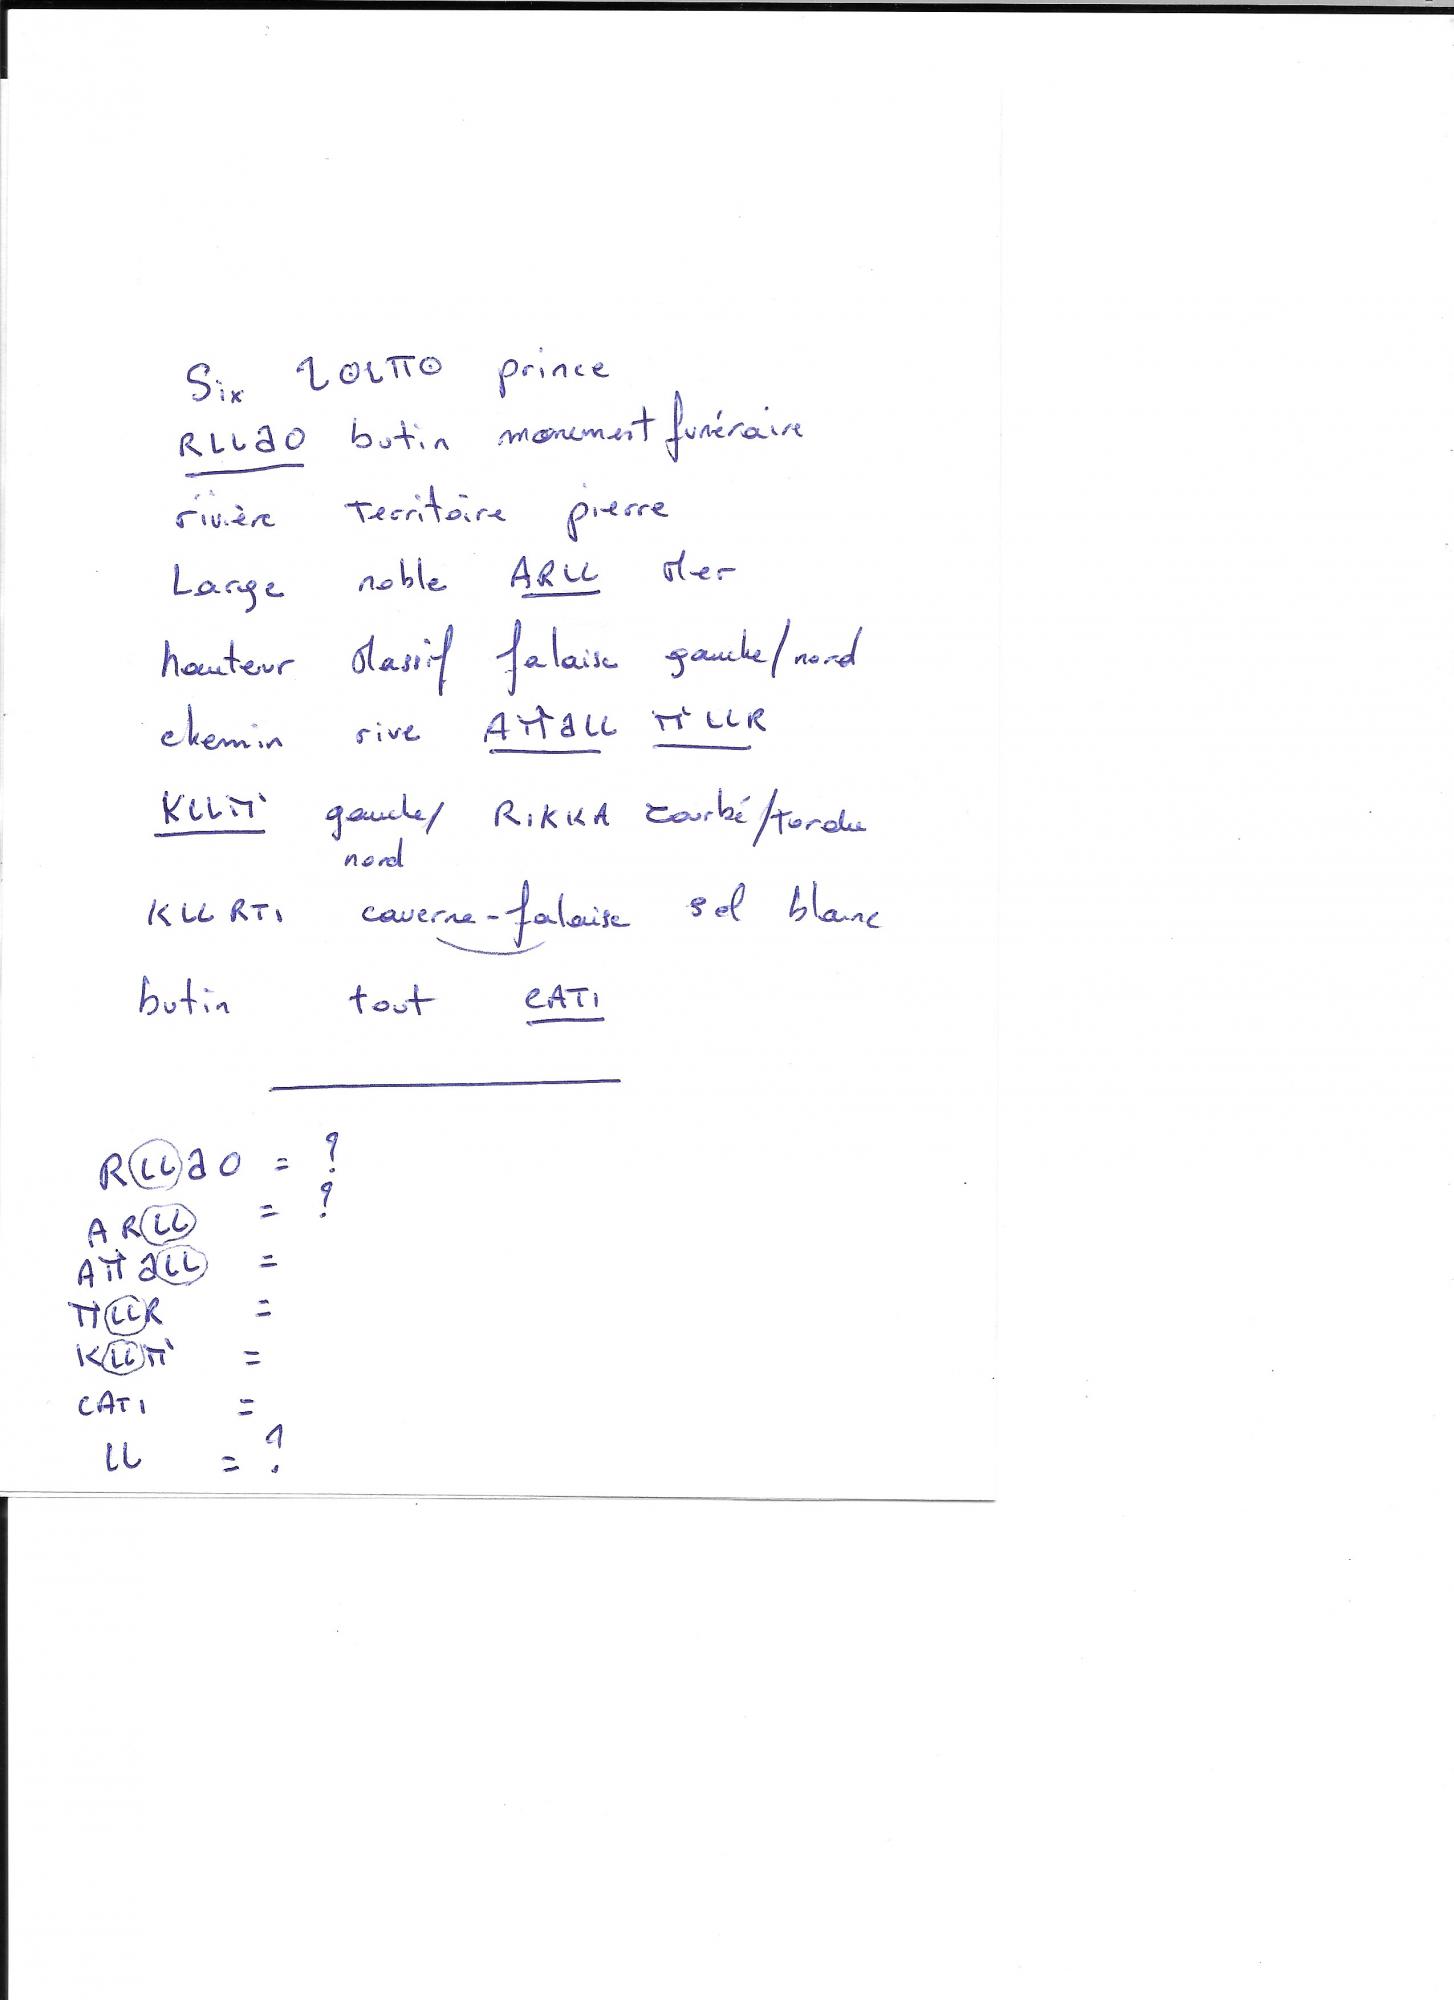 Six ƖOLΠO prince
RLLaO butin monument funéraire
rivière Territoire pierre
Large noble ARLL Mer
hauteur Massif falaise gauche/nord
chemin rive AΠaLL ΠLLR
KLLΠ gauche/ RiKKA courbé/tordu
nord
KLLRTi caverne-falaise sel blanc
butin tout CATi
RLLaO = ?
ARLL = ?
AΠaLL =
ΠLLR =
KLLΠ =
CATI =
LL = ?